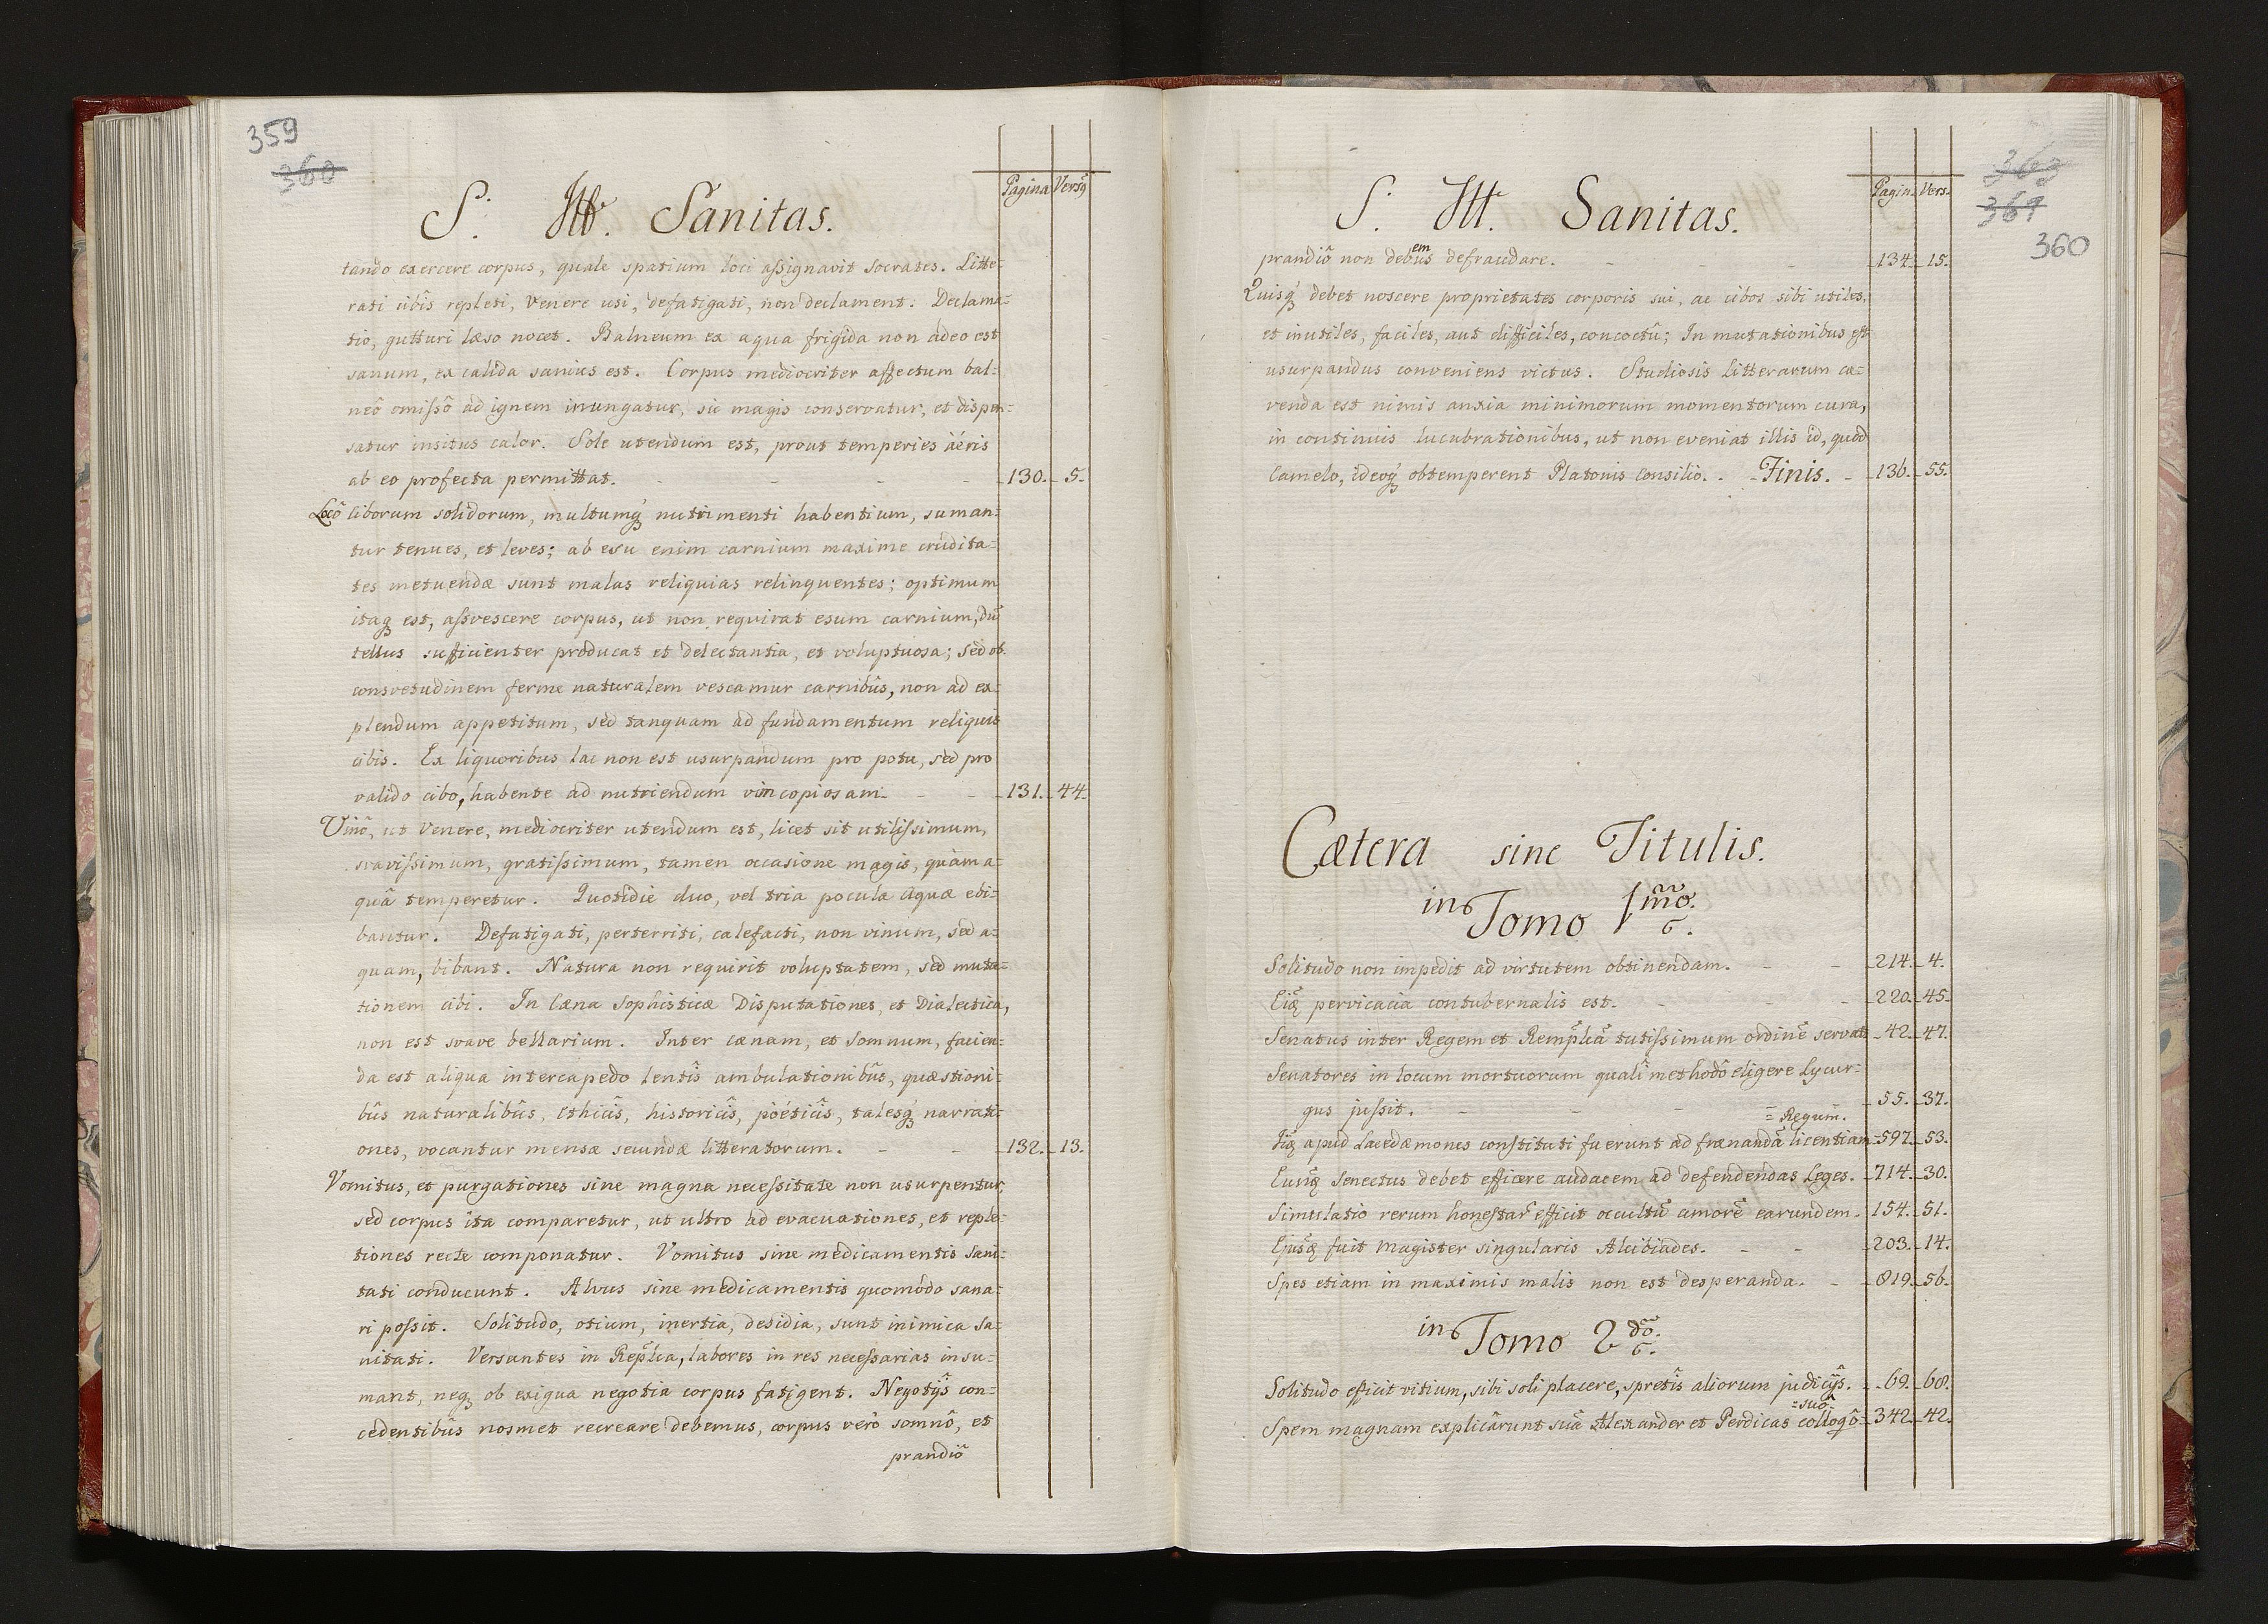 359
360
Pagina Versq́
S. M. Sanitas.
tando exercere corpus, quale spatium loci aſsignavit Socrates. Litte=
rati cibîs repleti, Venere usi, defatigati, non declament. Declama=
tio, gutturi læso nocet. Balneum ex aqua frigida non adeo est
sanum, ex calida sanius est. Corpus mediocriter affectum bal=
neô omiſsô ad ignem inungatur, sic magis conservatur, et dispen=
satur insitus calor. Sole utendum est, prout temperies aéris
ab eo profecta permittat. - - - - 130. 5.
Locô Ciborum solidorum, multumq́ nutrimenti habentium, suman=
tur tenues, et leves; ab esu enim carnium maxime crudita=
tes metuendæ sunt malas reliquias relinquentes; optimum
itaq́ est, aſsvescere corpus, ut non requirat esum carnium, dũ
tellus sufficienter producat et delectantia, et voluptuosa; sed ob
consvetudinem ferme naturalem vescamur carnibûs, non ad ex=
plendum appetitum, sed tanquam ad fundamentum reliquis
cibis. Ex liquoribus lac non est usurpandum pro potu, sed pro
valido cibo, habente ad nutriendum vim copiosam. - - 131. 44.
Vinô, ut Venere, mediocriter utendum est, licet sit utiliſsimum,
svaviſsimum, gratiſsimum, tamen occasione magis, quàm a=
quâ temperetur. Quotidie duo, vel tria pocula Aquæ ebi=
bantur. Defatigati, perterriti, calefacti, non vinum, sed a=
quam, bibant. Natura non requirit voluptatem, sed muta=
tionem cibi. In Cæna Sophisticæ Disputationes, et Dialectica,
non est svave bellarium. Inter cænam, et Somnum, facien=
da est aliqua intercapedo lentîs ambulationibûs, quæstioni=
bûs naturalibûs, Ethicîs, historicîs, pöéticîs, talesq́ narrati=
ones, vocantur mensæ secundæ litteratorum. - - 132. 13.
Vomitus, et purgationes sine magna neceſsitate non usurpentur,
sed corpus ita comparetur, ut ultro ad evacuationes, et reple=
tiones recte componatur. Vomitus sine medicamentis Sani=
tati conducunt. Alvus sine medicamentis quomodo sana=
ri poſsit. Solitudo, otium, inertia, desidia, sunt inimica sa=
nitati. Versantes in Repl̃ica, labores in res neceſsarias insu=
mant, neq́ ob exigua negotia corpus fatigent. Negotÿs con=
cedentibûs nosmet recreare debemus, corpus verò somnô, et
prandiô
363
361
360
Pagin. Vers.
S. M. Sanitas.
em
prandiô non debus defraudare. - - - 134. 15.
Quisq́ debet noscere proprietates corporis sui, ac cibos sibi utiles,
et inutiles, faciles, aut difficiles, concoctû; In mutationibus est
usurpandus conveniens victus. Studiosis Litterarum ca=
venda est nimis anxia minimorum momentorum cura,
in continuis lucubrationibus, ut non eveniat illis id, quod
Camelo, ideoq́ obtemperent Platonis Consilio. - Finis. - 136. 55.
Cætera sine Titulis.
in Tomo 1mo.
Solitudo non impedit ad virtutem obtinendam. - - 214. 4.
Eiq́ pervicacia contubernalis est. - - - 220. 45.
Senatus inter Regem et Rempl̃cã tutiſsimum ordinẽ servat 42. 47.
Senatores in locum mortuorum quali methodô eligere Lycur=
gus juſsit. - - - - 55. 37.
= Regum.
Iiq́ apud Lacedæmones constituti fuerunt ad frænandã licentiam= 597. 53.
Eurũq́ Senectus debet efficere audacem ad defendendas Leges. 714. 30.
Simulatio rerum honestar̃ efficit occultũ amorẽ earundem. 154. 51.
Ejusq́ fuit Magister singularis Alcibiades. - - 203. 14.
Spes etiam in maximis malis non est desperanda. - 819. 56.
in Tomo 2do.
Solitudo efficit vitium, sibi soli placere, spretîs aliorum judicÿs. 69. 60.
=suô.
Spem magnam explicârunt suã Alexander et Perdicas collogô= 342. 42.